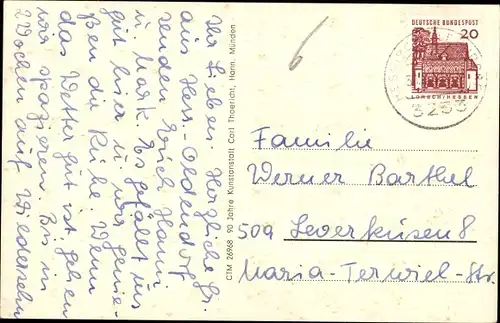 Ihr Lieben. Herzliche Gr.
aus Hess.-Oldendorf
senden Erich, Hanni
u. Mark. Es gefällt uns
gut hier u. wir genie-
ßen die Ruhe. Wenn
das Wetter gut ist, gehen
wir spazieren. Bis in
2 Wochen auf Wiedersehn
CTM 26968 90 Jahre Kunstanstalt Carl Thoericht, Hann. Münden
6
DEUTSCHE BUNDESPOST
20
LORSCH/HESSEN
3253
Familie
Werner Barthel
509 Leverkusen 8
Maria-Terwiel-Str.